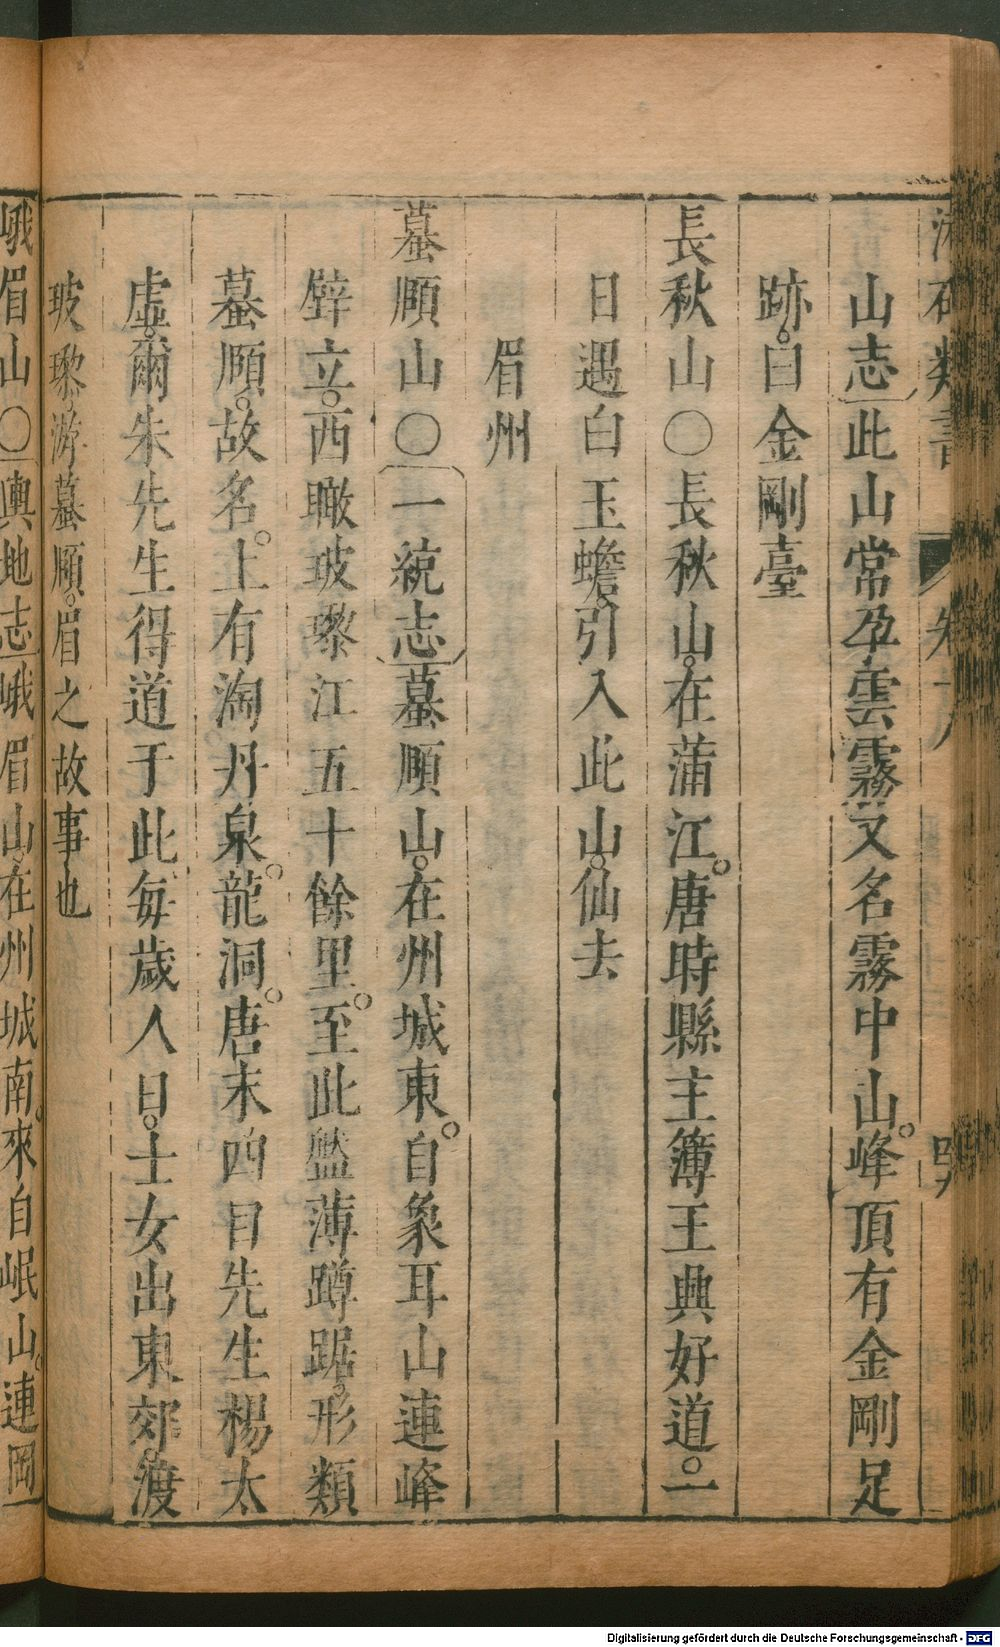 類書 卷十八
山志此山常孕雲霧又名霧中山峰頂有金剛足
跡曰金剛臺
長秋山○長秋山在蒲江唐時縣主簿王興好道一
日遇白玉蟾引入此山仙去
眉州
蟇頤山○一統志蟇頤山在州城東自象耳山連峰
壁立西瞰玻瓈江五十餘里至此盤薄蹲踞形類
蟇頤故名上有淘丹泉龍洞唐末四目先生楊太
虛爾朱先生得道于此每歲人日士女出東郊渡
玻瓈游蟇頤眉之故事也
峨眉山○輿地志峨眉山在州城南來自岷山連岡
Digitalisierung gefördert durch die Deutsche Forschungsgemeinschaft - DFG